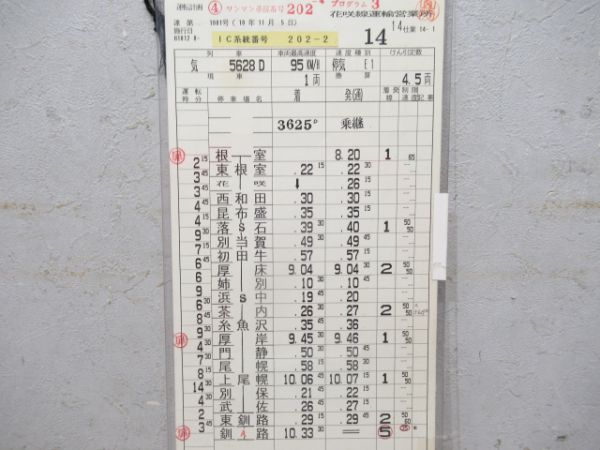 運転計画 ④ ワンマン系統番号 202 プログラム 3 花咲線運輸営業所
達 第 1001号(10年11月5日)
施行日 IC系統番号 202-2 14 14仕業 14-1
列車 車両最高速度 速度種別 けん引定数
気 5628D 95KM/H 停気 E1
現車 1両 4.5両
運転時分 停車場名 着 発(通) 着発線 制限速度 記事
3625D 乗継
根室 8.20 1 65
2 15 東根室 .22 15 .22 30
3 45 花咲 ↓ .26 15
3 45 西和田 .30 .30
4 45 昆布盛 .35 .35
4 15 落石 .39 30 .40 1 50 50
9 別当賀 .49 30 .49 45
7 初田牛 .57 .57
6 厚床 9.04 9.04 30 2 50 50
6 姉別 .10 30 .10
8 浜中 .19 .20
6 茶内 .26 .26 2 50 50
8 糸魚沢 .35 .36
9 厚岸 9.45 30 9.46 1 50 50
4 門静 .50 .50
7 尾幌 .58 .58
8 上尾幌 10.06 10.07 1
14 別保 .21 .22
4 武佐 .26 .27
2 東釧路 .29 .29 2
3 釧路 10.33 5